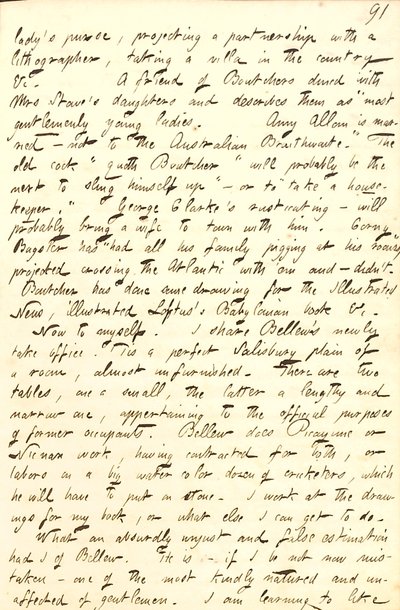 91
lady's purse, projecting a partnership with a
lithographer, taking a villa in the country
&c. A friend of Boutchers dined with
Mrs Stowe's daughters and describes them as "most
gentlemenly young ladies. Amy Allom is mar-
ried — not to "the Australian Braithwaite." "The
old cock" quoth Boutcher "will probably be the
next to sling himself up" — or to "take a house-
keeper." George Clarke's rusticating — will
probably bring a wife to town with him. "Corny"
Bagster has "had all his family pigging at his rooms",
projected crossing the Atlantic with 'em and — didn't.
Boutcher has done some drawing for the Illustrated
News, illustrated Loftus's Babylonian book &c.
Now to myself. I share Bellew's newly
take office. 'Tis a perfect Salisbury plain of
a room, almost unfurnished. There are two
tables, one a small, the latter a lengthy and
narrow one, appertaining to the official purposes
of former occupants. Bellew does Picayune or
Nicnax work, having contracted for both, or
labors on a big water color dozen of cricketers, which
he will have to put on stone. I work at the draw-
ings for my book, or what else I can get to do.
What an absurdly unjust and false estimation
had I of Bellew. He is — if I be not now mis-
taken — one of the most kindly natured and un-
affected of gentlemen. I am learning to like